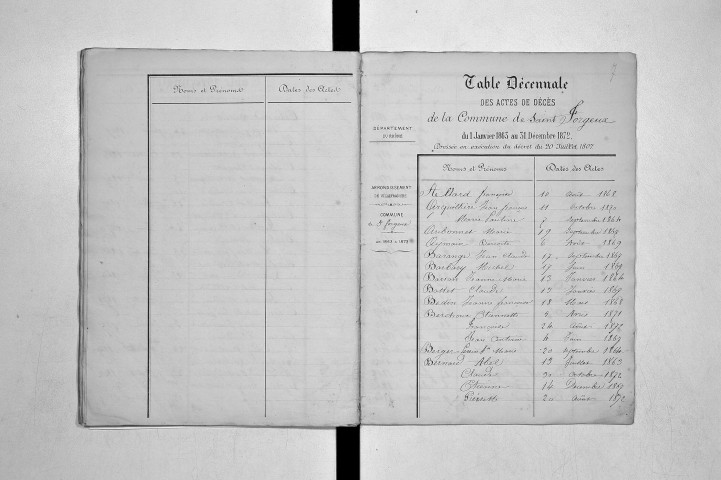 Noms et Prénoms Dates des Actes
7
Table Décennale
DES ACTES DE DÉCÈS
de la Commune de Saint Forgeux
du 1 Janvier 1863 au 31 Décembre 1872.
Dressée en exécution du décret du 20 Juillet 1807
DÉPARTEMENT
DU RHÔNE
ARRONDISSEMENT
DE VILLEFRANCHE
COMMUNE
de St Forgeux
Noms et Prénoms Dates des Actes
François 10 Août 1868
Jean 11 Octobre 1870
Marie Pauline 9 Septembre 1864
Arbonnet Marie 19 Septembre 1869
6 Août 1869
Barange Jean Claude 17 Septembre 1869
Michel 17 Juin 1869
Jeanne Marie 13 Janvier 1864
Claude 13 Janvier 1869
Bedon Jeanne 18 Mars 1868
1871
Françoise 24 Août 1872
Jean Antoine 4 Juin 1869
Berger Marie 20 Septembre 1864
Bernard Abel 13 Juillet 1863
Claude 30 Octobre 1872
Etienne 14 Décembre 1867
Pierrette 20 Août 1872